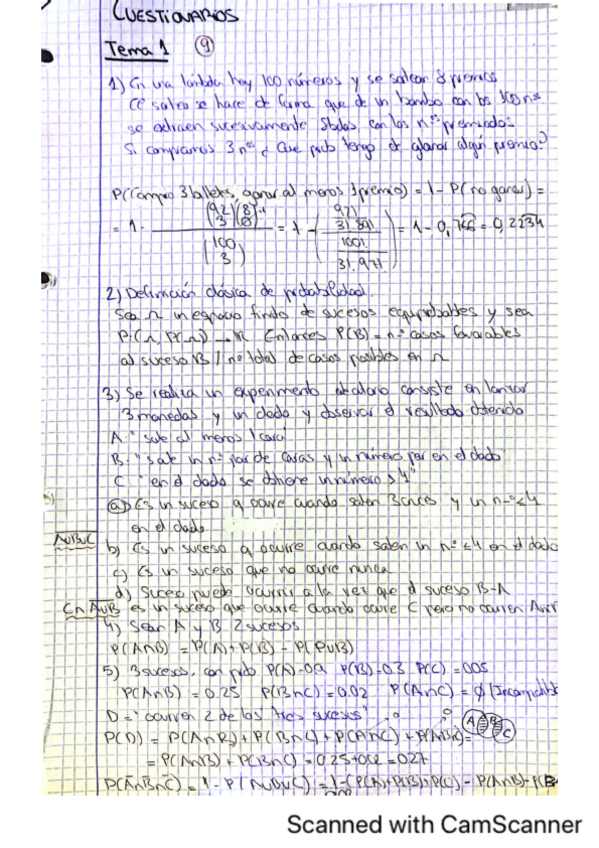 CUESTIONARIOS
Tema 1 (9)
1) En una tómbola hay 100 números y se sortean 8 premios
se hace de forma que de un bombo con los 100 nos
se extraen sucesivamente 8 bolas con los nos premiados.
Si compramos 3 nos ¿Que prob tengo de ganar algún premio?
P(Compro 3 billetes, ganar al menos 1 premio) = 1 - P(no ganar) =
= 1 - = 1 - = 1 - 0,766 = 0,2234
2) Definición clásica de probabilidad.
Sea Ω un espacio finito de sucesos equiprobables y sea
Entonces P(B) = nº casos favorables
al suceso B / nº total de casos posibles en Ω
3) Se realiza un experimento aleatorio consiste en lanzar
3 monedas y un dado y observar el resultado obtenido
A: "sale al menos 1 cara"
B: "sale un nº par de caras y un número par en el dado"
C "en el dado se obtiene un número > 4"
a) Es un suceso q ocurre cuando salen 3 cruces y un nº ≤ 4
en el dado
b) Es un suceso q ocurre cuando salen un nº ≤ 4 en el dado
c) Es un suceso que no ocurre nunca
d) Suceso puede ocurrir a la vez que el suceso B-A
es un suceso que ocurre cuando ocurre C pero no ocurren
4) Sean A y B 2 sucesos
P(A∩B) = P(A) + P(B) - P(AUB)
5) 3 sucesos, con prob P(A)=0.9 P(B)=0.3 P(C)=0.05
P(A∩B) = 0.25 P(B∩C) = 0.02 P(A∩C) = ∅
D = "ocurren 2 de los tres sucesos"
P(D) = P(A∩B) + P(B∩C) + P(A∩C) + P(A∩B∩C) =
= P(A∩B) + P(B∩C) = 0.25 + 0.02 = 0.27
= 1 - P(AUBUC) = 1 - (P(A)+P(B)+P(C) - P(A∩B) -
Scanned with CamScanner